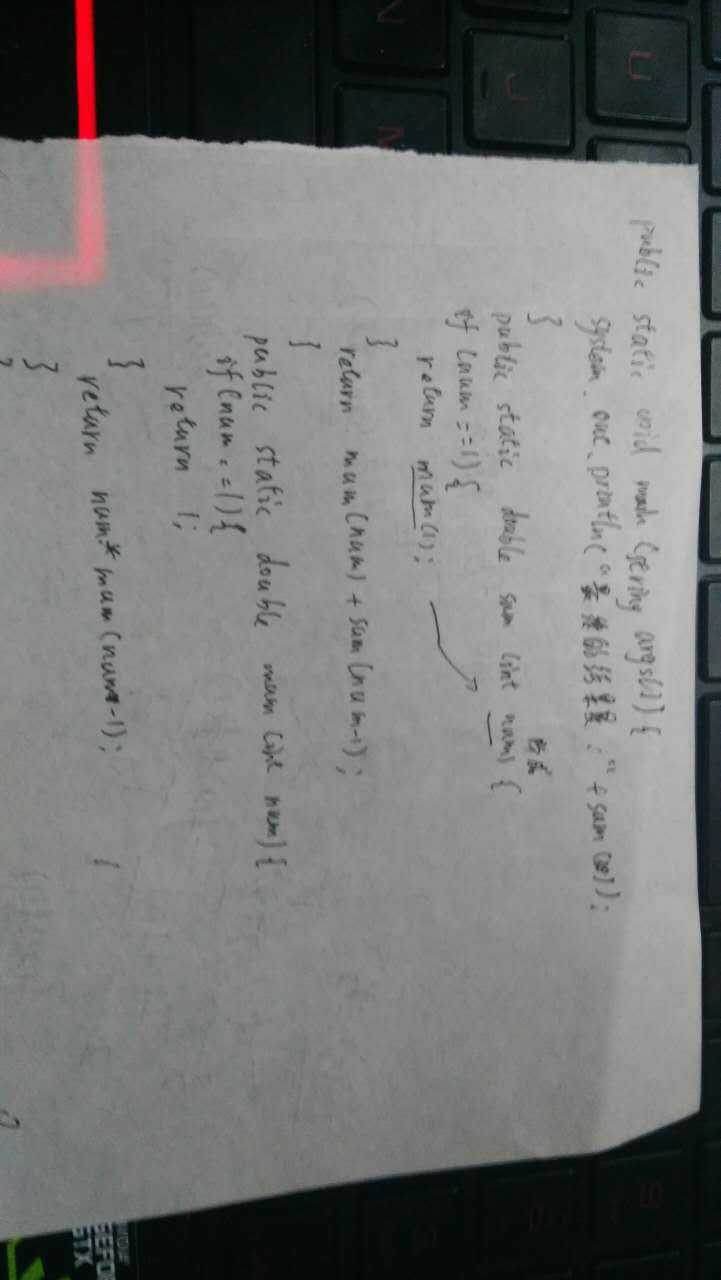 public static void main (string args[]) {
system. out. println( "最终的结果是：" + sum (20));
}
public static double sum (int num) {
if (num == 1) {
return mum(1);
}
return mum(num) + sum(num-1);
}
public static double mum (int num) {
if (num == 1) {
return 1;
}
return num* mum(num-1);
}
}
U
J
N
M
GTX